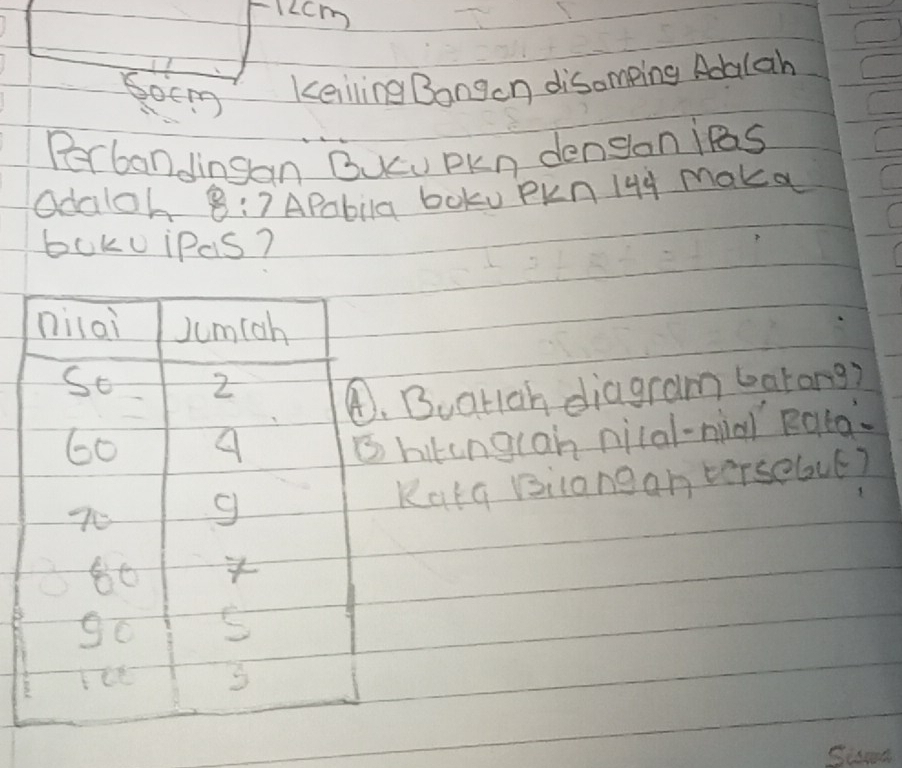 12cm
50cm
Keiiing Bangcn disamping Adalah
...
Perbandingan Buku Pkn dengan iPas
adalah 8:7 APabila boku PKn 144 Maka
buku iPas?
nilai Jumlah
50 2
60 4
70 9
80 7
90 5
100 3
A. Buatlah diagram batang?
B hitunglah nilai-nilai Rata-
Rata Bilangan tersebut?